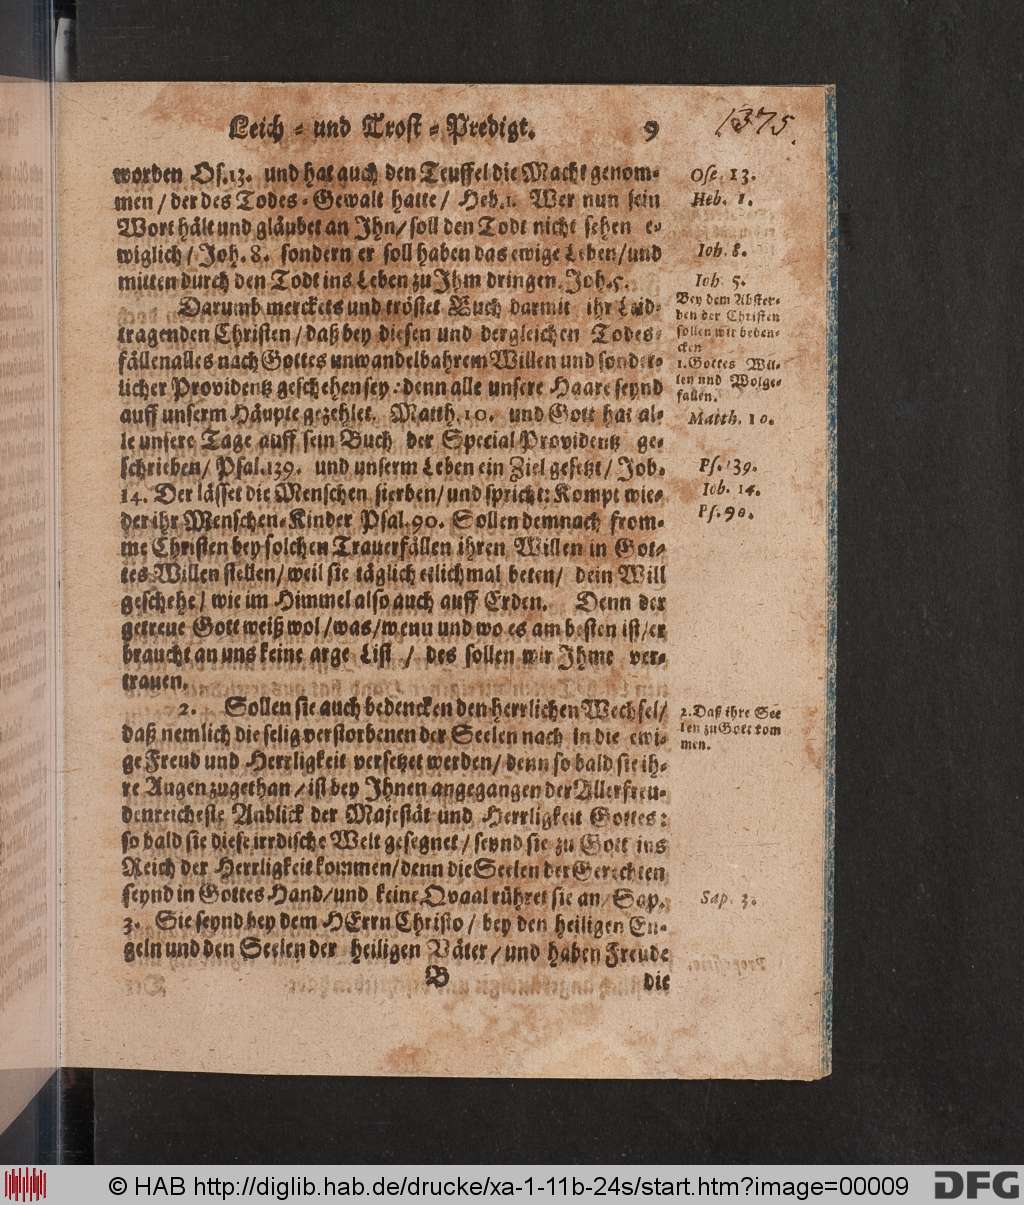 Leich - und Trost - Predigt. 9
1375.
worden Os.13. und hat auch den Teuffel die Macht genom-
men / der des Todes - Gewalt hatte / Heb.1. Wer nun sein
Wort hält und gläubet an Ihn / soll den Todt nicht sehen e-
wiglich / Joh. 8. sondern er soll haben das ewige Leben / und
mitten durch den Todt ins Leben zu Ihm dringen. Joh. 5.
Darumb merckets und tröstet Euch darmit ihr Leid-
tragenden Christen / daß bey diesen und dergleichen Todes-
fällen alles nach Gottes unwandelbahrem Willen und sonder-
licher Providentz geschehen sey: denn alle unsere Haare seynd
auff unserm Häupte gezehlet. Matth. 10. und Gott hat al-
le unsere Tage auff sein Buch der Special Providentz ge-
schrieben / Psal. 139. und unserm Leben ein Ziel gesetzt / Job.
14. Der lässet die Menschen sterben / und spricht: Kompt wie-
der ihr Menschen-Kinder Psal. 90. Sollen demnach from-
me Christen bey solchen Trauerfällen ihren Willen in Got-
tes Willen stellen / weil sie täglich etlichmal beten / dein Will
geschehe / wie im Himmel also auch auff Erden. Denn der
getreue Gott weiß wol / was / wenn und wo es am besten ist / er
braucht an uns keine arge List / des sollen wir Ihme ver-
trauen.
2. Sollen sie auch bedencken den herrlichen Wechsel /
daß nemlich die selig verstorbenen der Seelen nach in die ewi-
ge Freud und Herrligkeit versetzet werden / denn so bald sie ih-
re Augen zugethan / ist bey Ihnen angegangen der Allerfreu-
denreicheste Anblick der Majestät und Herrligkeit Gottes:
so bald sie diese irrdische Welt gesegnet / seynd sie zu Gott ins
Reich der Herrligkeit kommen / denn die Seelen der Gerechten
seynd in Gottes Hand / und keine Qvaal rühret sie an / Sap.
3. Sie seynd bey dem HErrn Christo / bey den heiligen En-
geln und den Seelen der heiligen Väter / und haben Freude
B die
Ose. 13.
Heb. 1.
Ioh. 8.
Ioh. 5.
Bey dem Abster-
ben der Christen
sollen wir beden-
cken
1. Gottes Wil-
len und Wolge-
fallen.
Matth. 10.
Ps. 139.
Iob. 14.
Ps. 90.
2. Daß ihre See
len zu Gott kom
men.
Sap. 3.
© HAB http://diglib.hab.de/drucke/xa-1-11b-24s/start.htm?image=00009
DFG